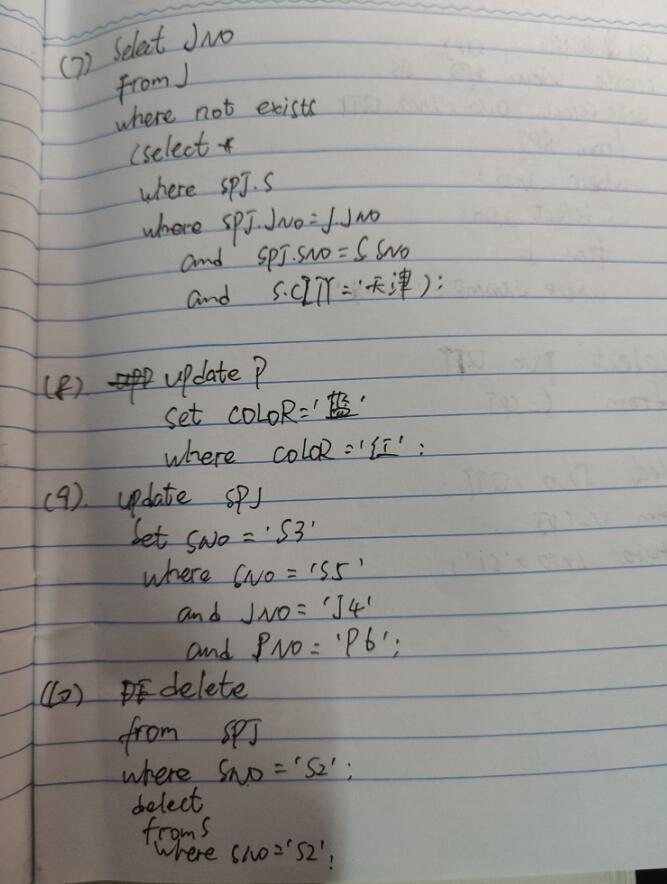 (7) Select JNO
from J
where not exists
(select *
where SPJ.S
where SPJ.JNO=J.JNO
and SPJ.SNO=S SNO
and S.CITY='天津');
(8). update P
set COLOR='蓝'
where COLOR='红';
(9). update SPJ
set SNO='S3'
where SNO='S5'
and JNO='J4'
and PNO='P6';
(10) delete
from SPJ
where SNO='S2';
delect
from S
where SNO='S2';